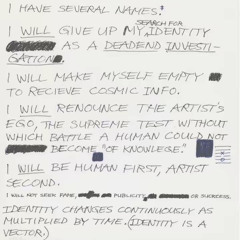 I HAVE SEVERAL NAMES.
SEARCH FOR
I WILL GIVE UP MY IDENTITY
AS A DEADEND INVESTI-
GATION.
I WILL MAKE MYSELF EMPTY
TO RECIEVE COSMIC INFO.
I WILL RENOUNCE THE ARTIST'S
EGO, THE SUPREME TEST WITHOUT
WHICH BATTLE A HUMAN COULD NOT
BECOME "OF KNOWLEDGE."
I WILL BE HUMAN FIRST, ARTIST
SECOND.
I WILL NOT SEEK FAME, PUBLICITY, OR SUCCESS.
IDENTITY CHANGES CONTINUOUSLY AS
MULTIPLIED BY TIME. (IDENTITY IS A
VECTOR.)